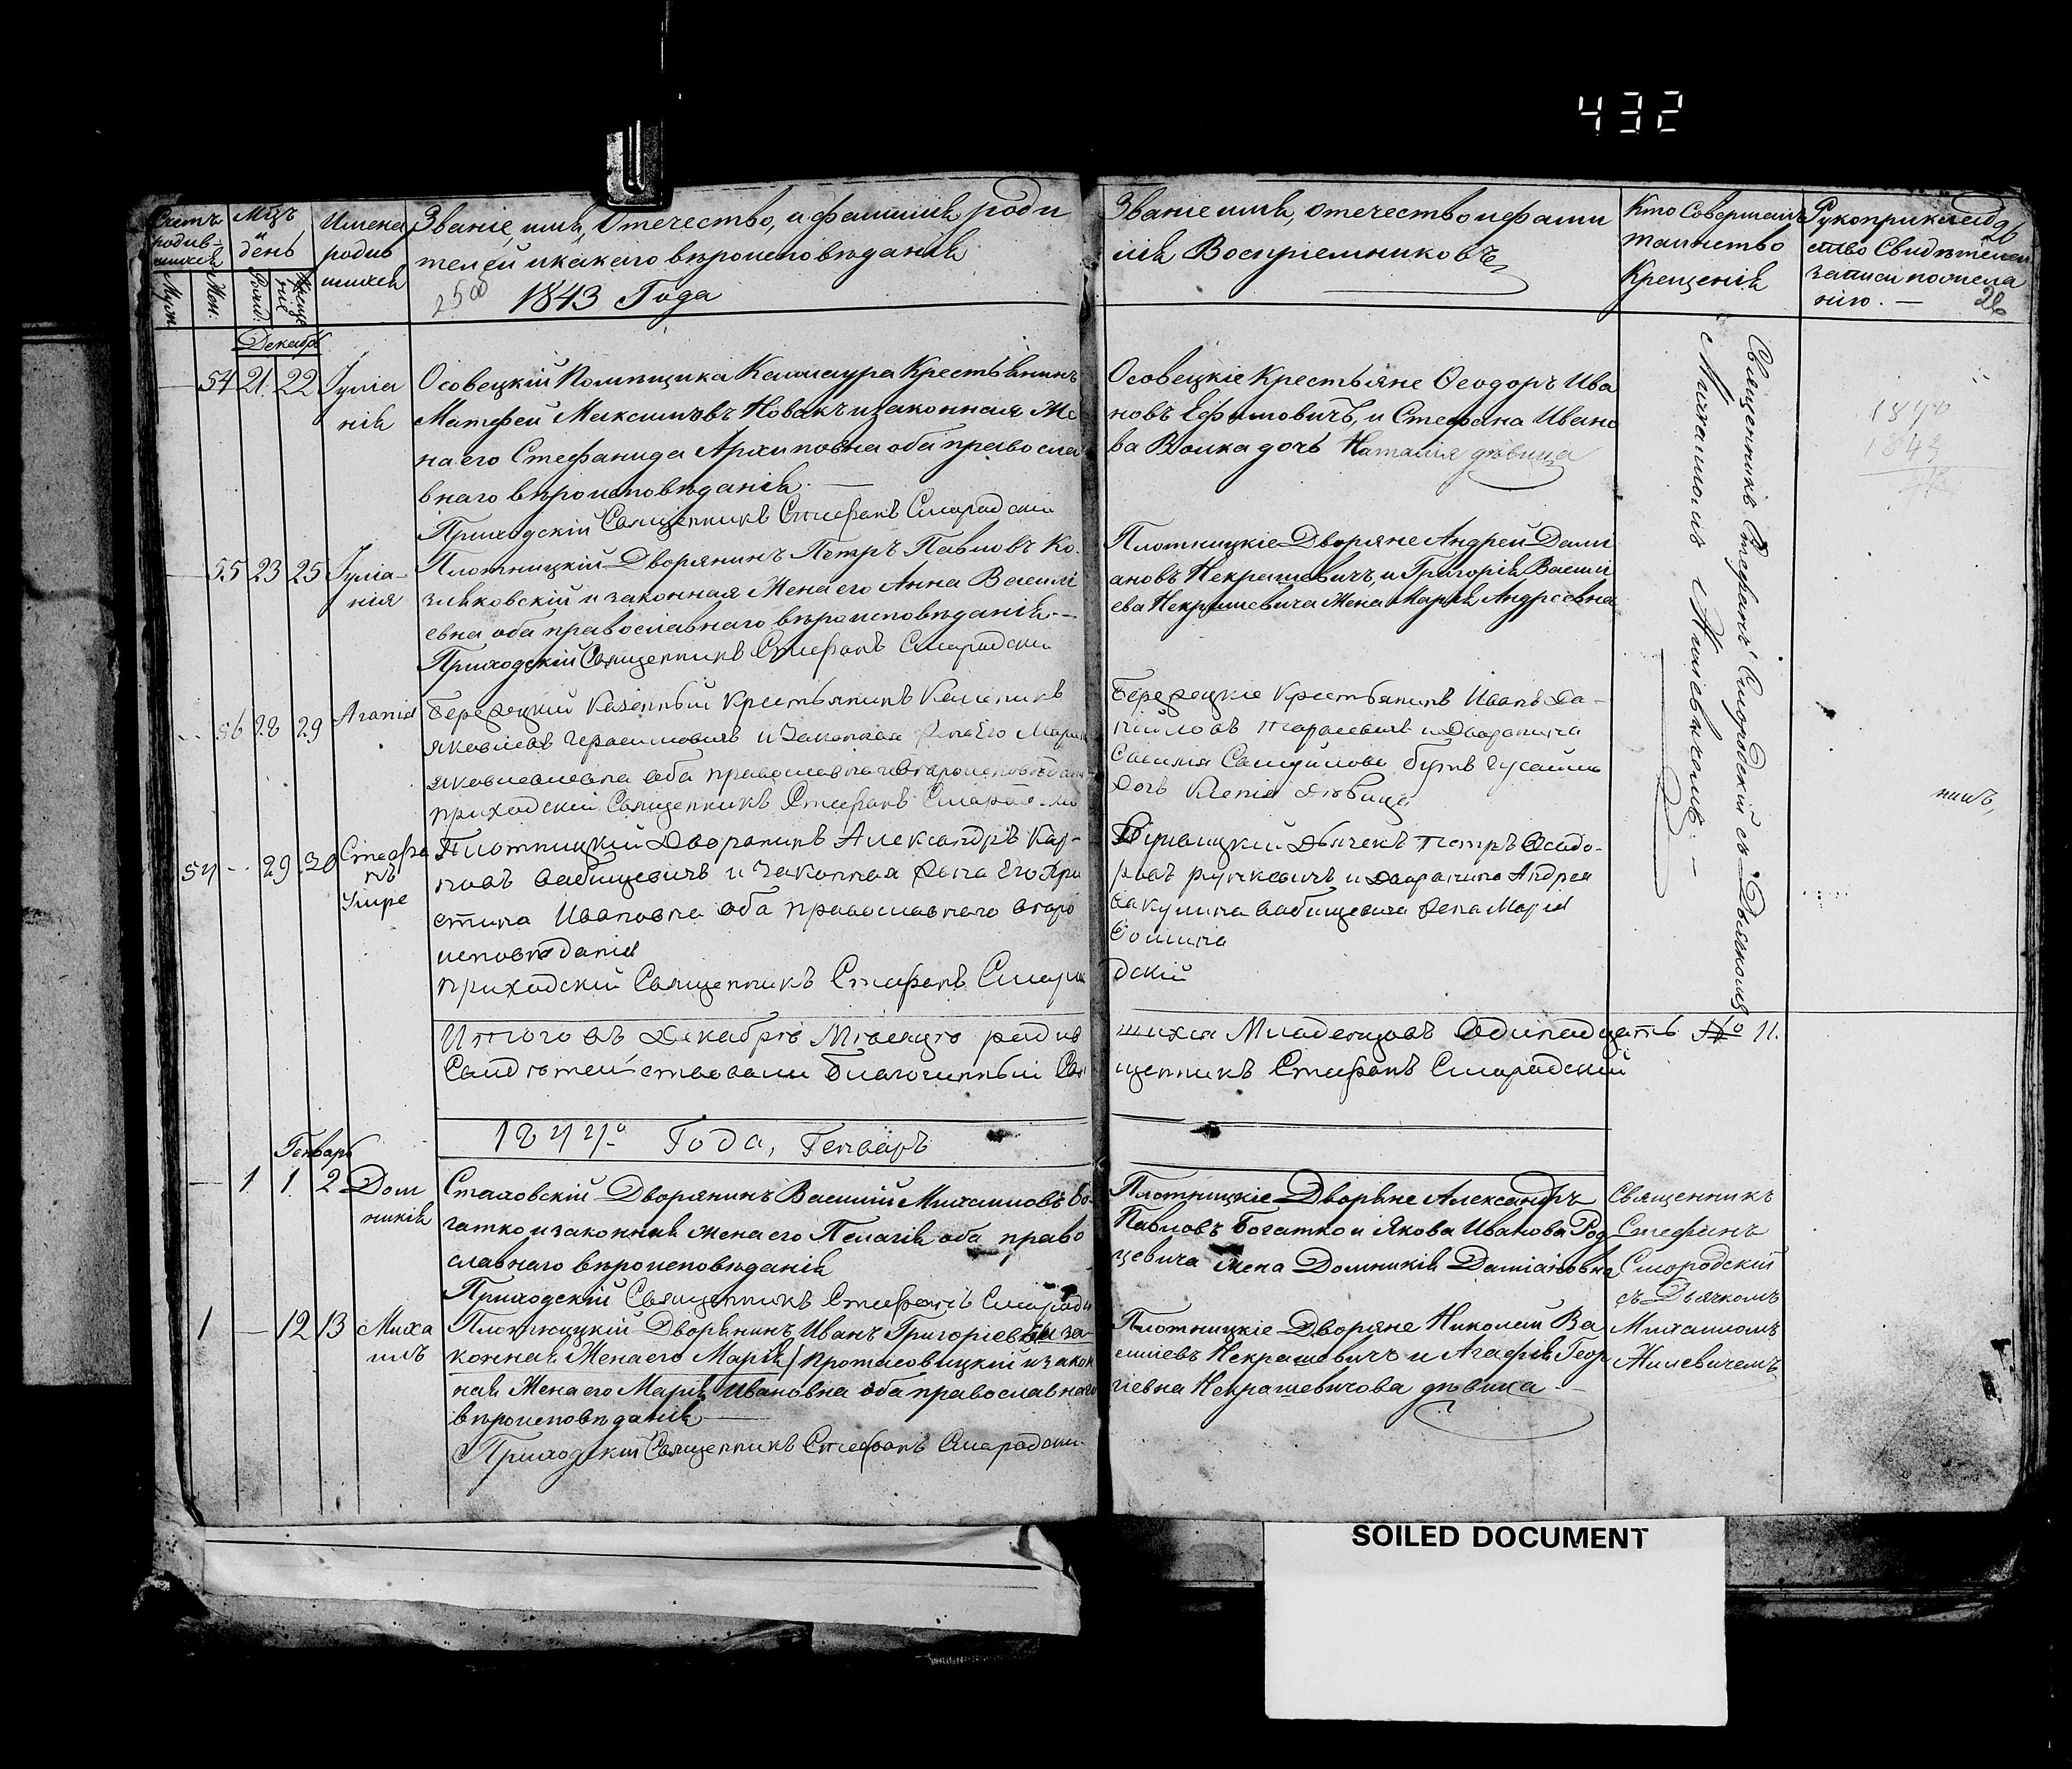 432
Счетъ родив-шихся
Муж.
Жен.
Мцъ и день
Рожд:
Крещенія
Имена родившихся
Званіе, имя, Отечество, и фамилія роди
телей и какаго вѣроисповѣданія
2500 1843 Года
Званіе имя, отечество и фами
лія Воспріемниковъ
Кто Совершалъ
таинство
Крещенія
Рукоприкладс
ство Свидѣтелей
записи по жела
нію. —
26
Декабрь
54 21. 22 Іуліа
нія
Осовецкій Помѣщика Крестьянинъ
Матфей Максимовъ Новакъ и законная Же
на его Стефанида Архиповна оба правосла
внаго вѣроисповѣданія. —
Приходскій Священникъ Стефанъ Смородскій
Осовецкіе Крестьяне Ѳеодоръ Ива
новъ Ефимовичъ, и Стефана Ивано
ва Волка дочь Наталія дѣвица
1843
55 23 25 Іуліа-
нія
Плотницкій Дворянинъ Петръ Павловъ Ко-
зляковскій и законная Жена его Анна Василі
евна оба православнаго вѣроисповѣданія. —
Приходскій Священникъ Стефанъ Смородскій
Плотницкіе Дворяне Андрей Дами
ановъ Некрашевичъ, и Григорія Васили
ева Некрашевича Жена Марія Андреевна
56 28 29 Агапія
Бережецкій Казенный Крестьянинъ Калиникъ
Яковлевъ Герасимовичъ и Законная Жена Его Марія
Яковлевна оба православнаго вѣроисповѣданія
приходскій Священникъ Стефанъ Смородскій
Бережецкіе Крестьянинъ Иванъ Да-
ниловъ Тарасевичъ и Дворянина
Самуйлова
дочь Ксенія дѣвица
54 -- 29 30 Стефа
нъ
Плотницкій Дворянинъ Александръ Кар-
повъ Бабищевичъ и Законная Жена Его Хри
стина Ивановна оба православнаго вѣро
исповѣданія
приходскій Священникъ Стефанъ Смаро
дскій
Дьячекъ Петръ Исидо-
ровъ Ручкевичъ и Дворянина Андрея
Вакулина Бабищевича Жена Марія
Ѳомина
Священникъ Стефанъ Смородскій съ Дьячкомъ
Михаиломъ Жилевичемъ. —
нинъ,
Итого въ Декабрѣ Мѣсяцѣ родив
шихся Младенцовъ Одинадцать № 11.
Свидѣтельствовалъ Благочинный Свя
щенникъ Стефанъ Смарадскій
1844го Года, Генваръ
Генварь
1. 1. 2 Дом
никія
Стаховскій Дворянинъ Василій Михаиловъ Бо-
гатко и законная жена его Пелагія оба право
славнаго вѣроисповѣданія
Приходскій Священникъ Стефанъ Смородск
Плотницкіе Дворяне Александръ
Павловъ Богатко и Якова Иванова Род
цевича жена Домникія Даміановна
Священникъ
Стефанъ
Смородскій
съ Дьячкомъ
Михаиломъ
Жилевичемъ
1 — 12 13 Миха
илъ
Плотницкій Дворянинъ Иванъ Григоріевъ и за-
конная Жена его Марія / Протасовицкій и закон
ная Жена его Марія Ивановна оба православнаго
вѣроисповѣданія —
Приходскій Священникъ Стефанъ Смородскій
Плотницкіе Дворяне Николай Ва
силіевъ Некрашевичъ и Агафія Геор
гіевна Некрашевичова дѣвица
SOILED DOCUMENT